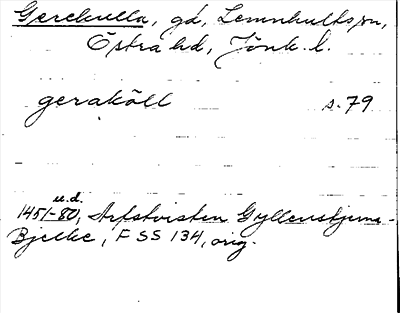 Gerekulla, gd, Lemnhults sn,
Östra hd, Jönk. l.
geraköll s. 79
u.d.
1451-80, Arfstvisten Gyllenstjerna-
Bjelke, FSS 134, orig.